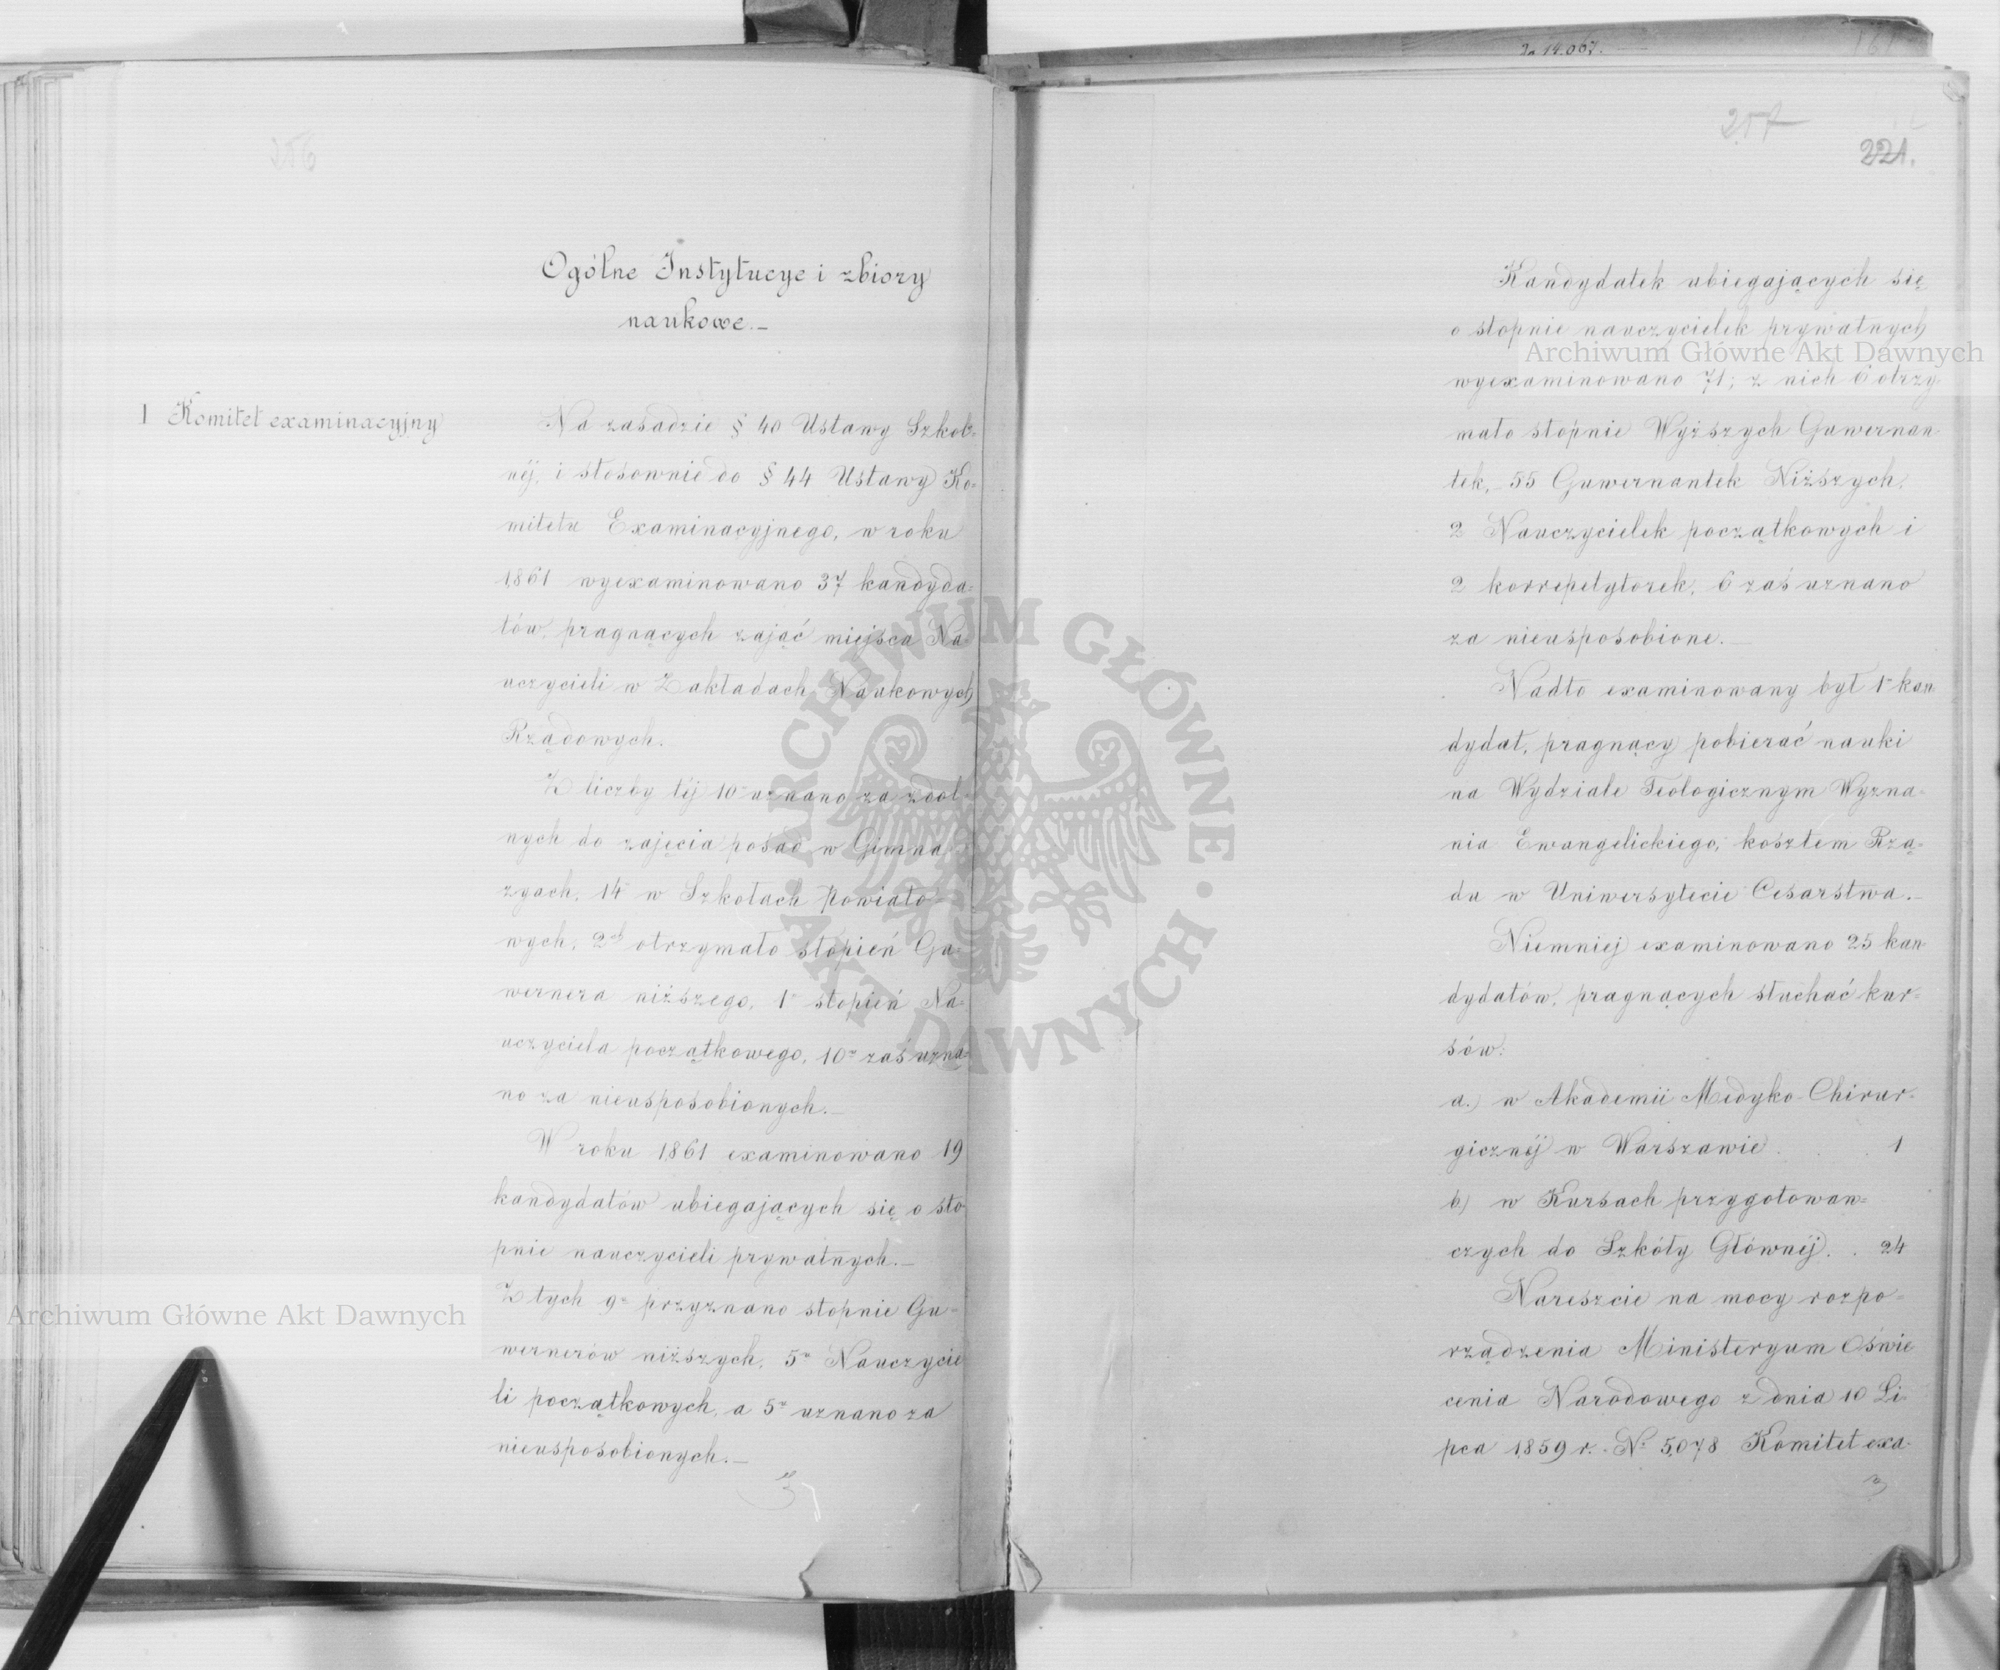 256
Ogólne Instytucye i zbiory
naukowe.–
I Komitet examinacyjny
Na zasadzie § 40 Ustawy Szkol=
néj, i stosownie do § 44 Ustawy Ko=
mitetu Examinacyjnego, w roku
1861 wyexaminowano 37 kandyda=
tów, pragnących zająć miejsca Na
uczycieli w Zakładach Naukowych
Rządowych.
Z liczby téj 10 uznano za zdol=
nych do zajęcia posad w Gimna
zyach, 14 w Szkołach Powiato=
wych, 2ch otrzymało stopień Gu=
wernera niższego, 1 stopień Na=
uczyciela początkowego, 10 zaś uzna=
no za nieusposobionych.–
W roku 1861 examinowano 19
kandydatów ubiegających się o sto
pnie nauczycieli prywatnych.–
Z tych 9 przyznano stopnie Gu=
wernerów niższych, 5 Nauczycie
li początkowych, a 5 uznano za
nieusposobionych.–
Archiwum Główne Akt Dawnych
257
221.
Kandydatek ubiegających się
o stopnie nauczycielek prywatnych
Archiwum Główne Akt Dawnych
wyexaminowano 71; z nich 6 otrzy
mało stopnie Wyższych Guwernan
tek, – 55 Guwernantek Niższych,
2 Nauczycielek początkowych i
2 korrepetytorek, 6 zaś uznano
za nieusposobione.–
Nadto examinowany był 1 kan
dydat, pragnący pobierać nauki
na Wydziale Teologicznym Wyzna=
nia Ewangelickiego, kosztem Rzą=
du w Uniwersytecie Cesarstwa.–
Niemniej examinowano 25 kan
dydatów, pragnących słuchać kur=
sów:
a.) w Akademii Medyko-Chirur=
gicznéj w Warszawie . . . 1
b) w Kursach przygotowaw=
czych do Szkóły Głównéj . . 24
Nareszcie na mocy rozpo=
rządzenia Ministeryum Oświe
cenia Narodowego z dnia 10 Li=
pca 1859 r. Nr 5078 Komitet exa=
ARCHIWUM GŁÓWNE · AKT DAWNYCH ·